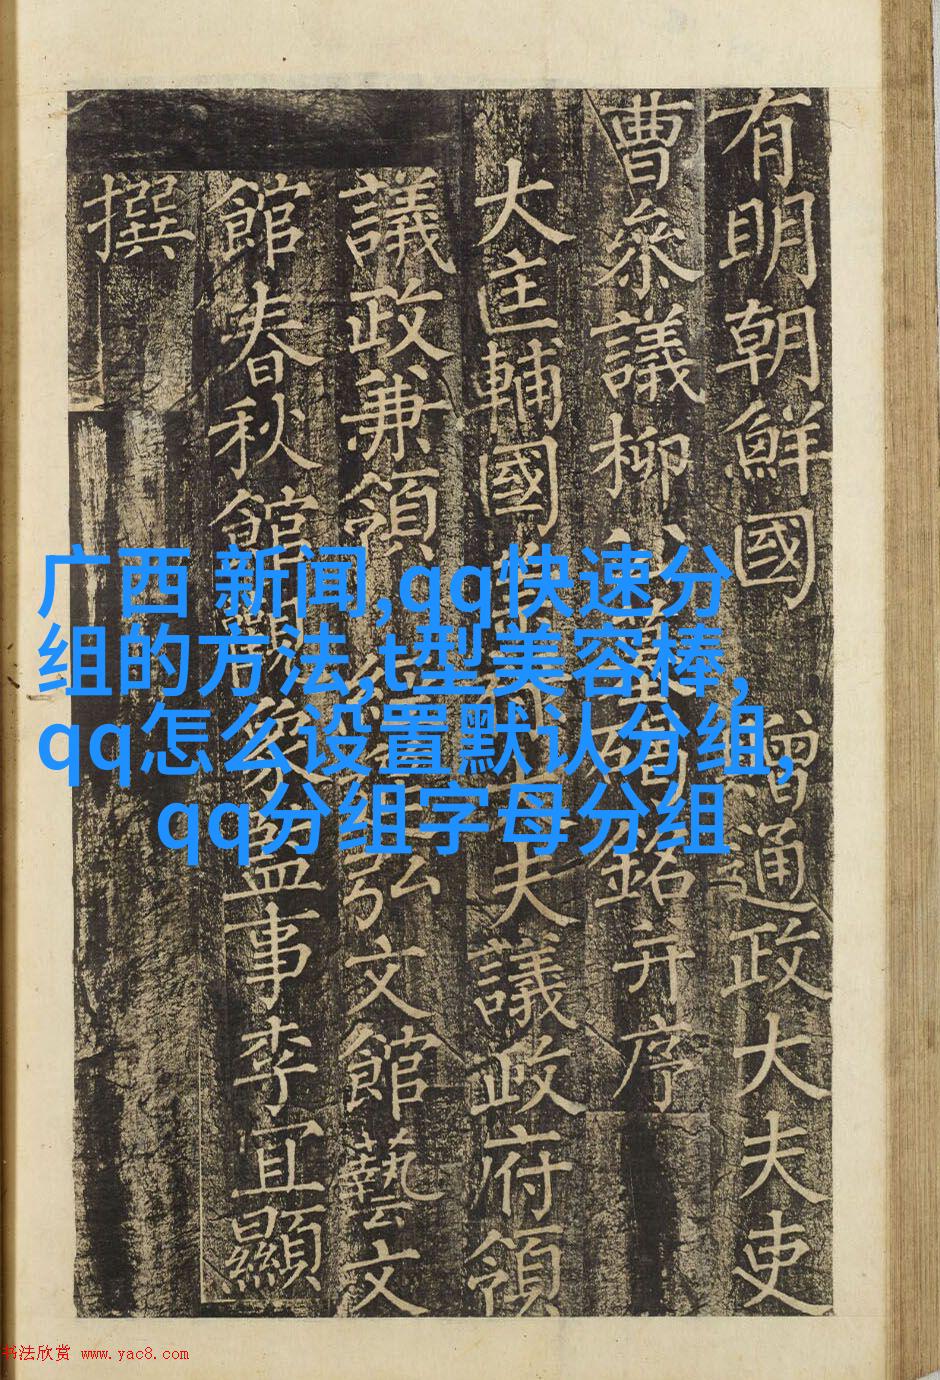 有明朝鮮國 贈通政大夫吏
曹叅議柳公墓碣銘并序
大匡輔國崇祿大夫議政府領
議政兼領 經筵弘文館藝文
館春秋館觀象監事李宜顯
撰
广西 新闻,qq快速分
组的方法,t型美容棒,
qq怎么设置默认分组,
qq分组字母分组
书法欣赏 www.yac8.com